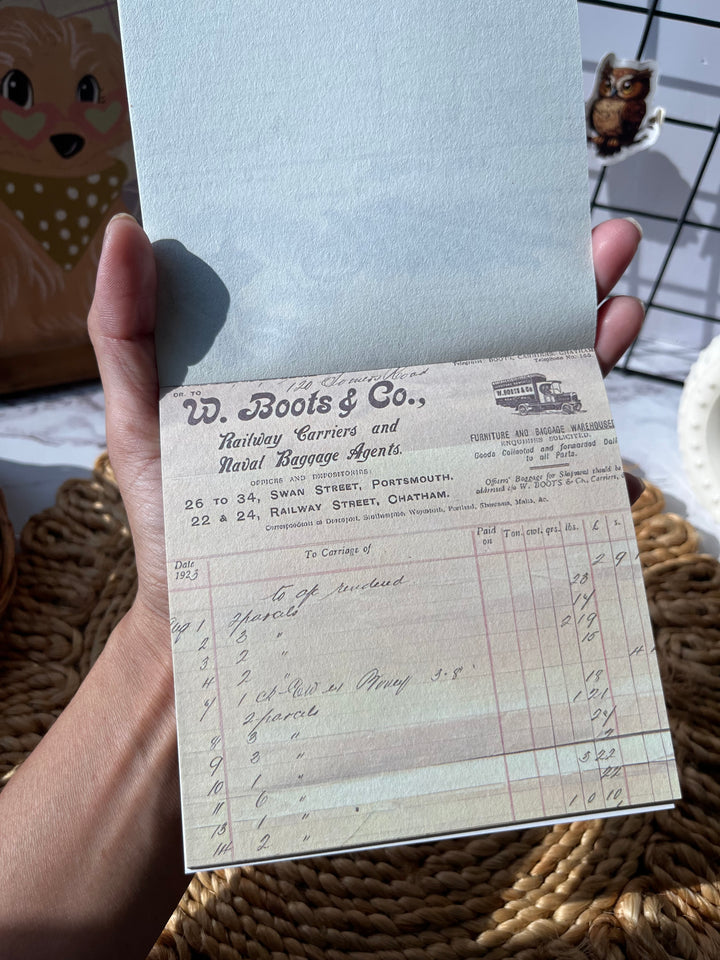 Telegrams: BOOTS, CARRIERS, CHATHAM.
Telephone No. 166.
120 Somers Road
DR. TO
W. Boots & Co.,
W. BOOTS & Co
Railway Carriers and
Naval Baggage Agents.
FURNITURE AND BAGGAGE WAREHOUSES
ENQUIRIES SOLICITED.
Goods Collected and forwarded Dail
to all Parts.
OFFICES AND DEPOSITORIES:
26 TO 34, SWAN STREET, PORTSMOUTH.
22 & 24, RAILWAY STREET, CHATHAM.
Officers' Baggage for Shipment should be
addressed c/o W. BOOTS & Co., Carriers,
Correspondents at Devonport, Southampton, Weymouth, Portland, Sheerness, Malta, &c.
Date
1923
To Carriage of
Paid
on
Ton. cwt. qrs. lbs. £ s.
to a/c rendered 2 9 1
Aug 1 2 parcels 23
2 3 " 14
3 2 " 2 19
4 2 " 15
7 1 3.8
2 parcels 18
8 3 " 1 21
9 3 " 24
10 1 " 2
11 6 " 3 22
13 1 " 22
14 2 " 1 0 10